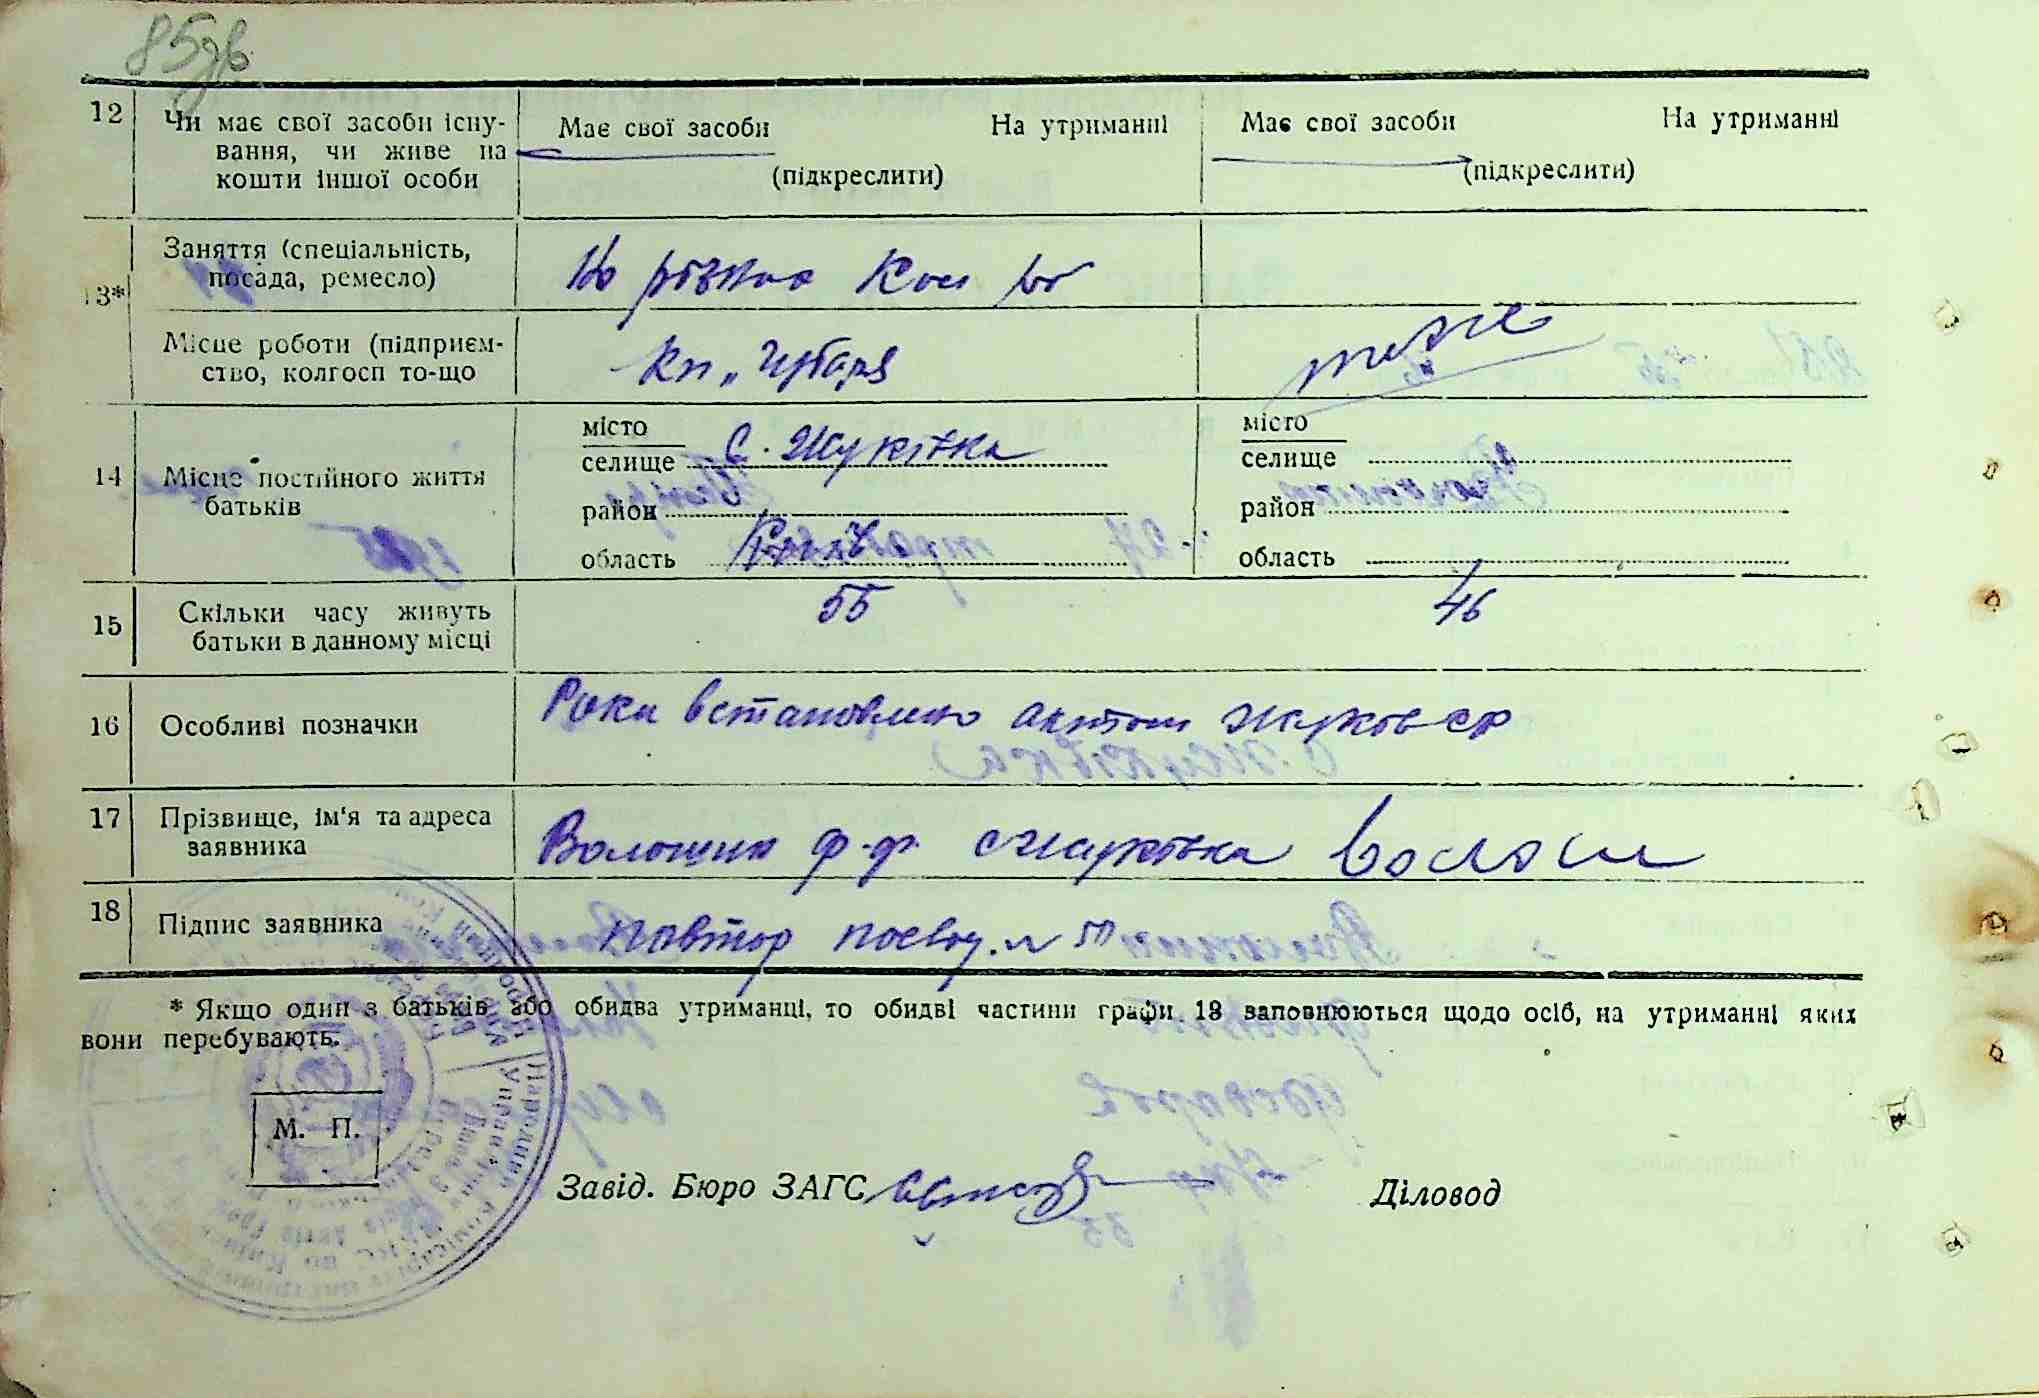 85зв
12 Чи має свої засоби існу-
вання, чи живе на
кошти іншої особи
Має свої засоби На утриманні
(підкреслити)
Має свої засоби На утриманні
(підкреслити)
13* Заняття (спеціальність,
посада, ремесло)
різних
Місце роботи (підприєм-
ство, колгосп то-що
Кп „ Чубаря
теж
14 Місце постійного життя
батьків
місто
селище С. Жуківка
район
область Київ
місто
селище
район
область
15 Скільки часу живуть
батьки в данному місці
55
46
16 Особливі позначки
Роки встановлено актом Жуков с/р
17 Прізвище, ім'я та адреса
заявника
Волошин ф.ф. с Жуковка Волош
18 Підпис заявника
повтор посвід. № 50
* Якщо один з батьків або обидва утриманці, то обидві частини графи 13 заповнюються щодо осіб, на утриманні яких
вони перебувають.
М. П.
Завід. Бюро ЗАГС
Діловод